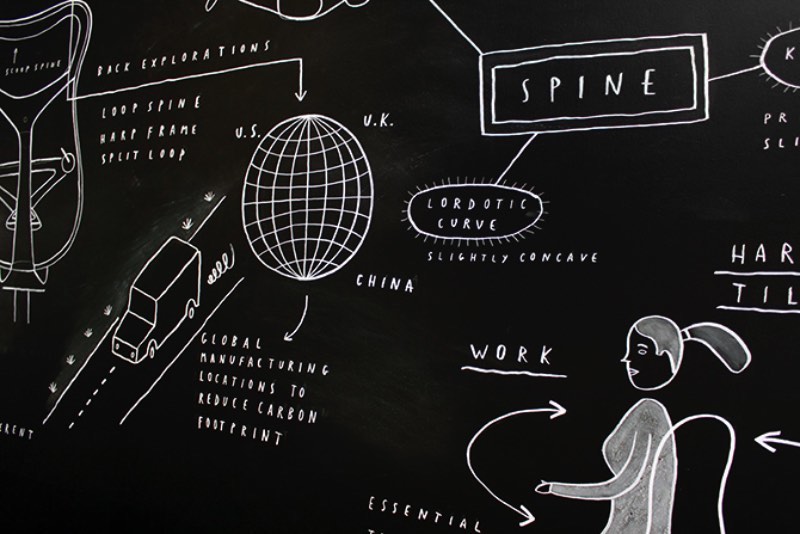 SCOOP SPINE
BACK EXPLORATIONS
LOOP SPINE
HARP FRAME
SPLIT LOOP
U.S.
U.K.
CHINA
GLOBAL
MANUFACTURING
LOCATIONS TO
REDUCE CARBON
FOOTPRINT
ERENT
SPINE
LORDOTIC
CURVE
SLIGHTLY CONCAVE
K
PR
SLI
HAR
TIL
WORK
ESSENTIAL